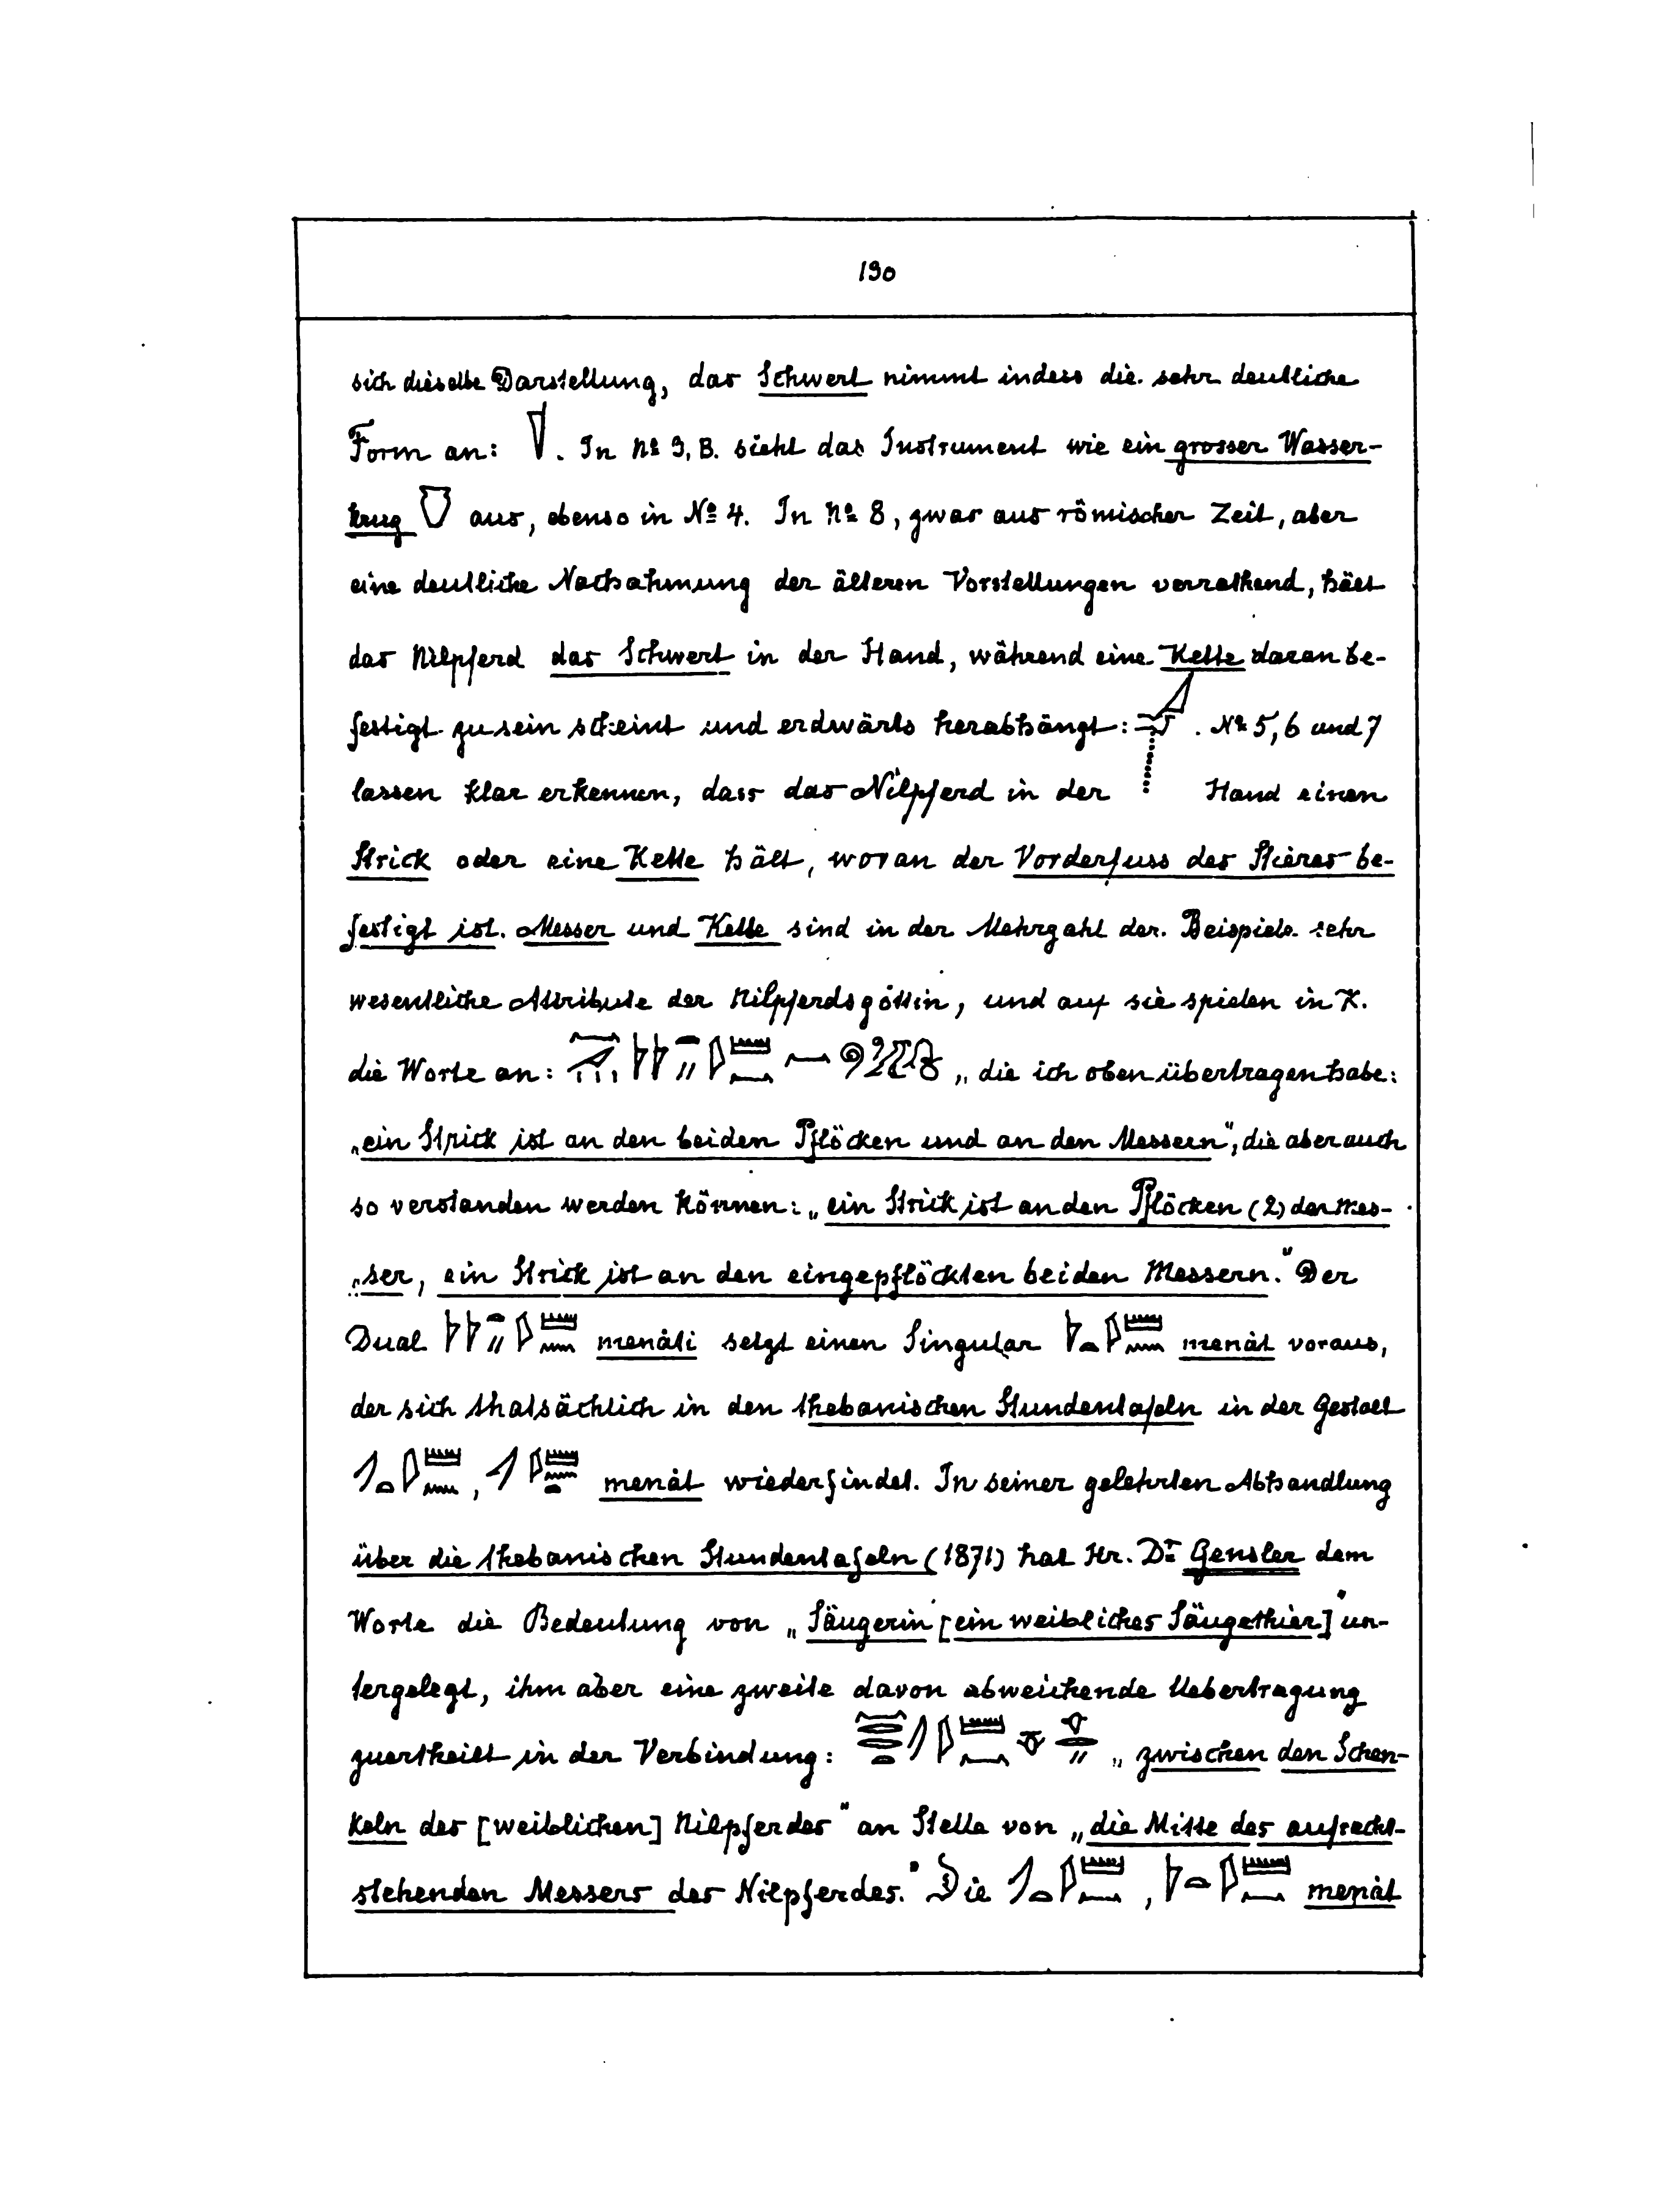 190
sich dieselbe Darstellung, das Schwert nimmt indess die sehr deutliche
Form an: . In No 3, B. sieht das Instrument wie ein grosser Wasser-
krug aus, ebenso in No 4. In No 8, zwar aus römischer Zeit, aber
eine deutliche Nachahmung der älteren Vorstellungen verrathend, hält
das Nilpferd das Schwert in der Hand, während eine Kette daran be-
festigt zu sein scheint und erdwärts herabhängt: . No 5, 6 und 7
lassen klar erkennen, dass das Nilpferd in der Hand einen
Strick oder eine Kette hält, woran der Vorderfuss des Stieres be-
festigt ist. Messer und Kette sind in der Mehrzahl der Beispiele sehr
wesentliche Attribute der Nilpferdsgöttin, und auf sie spielen in K.
die Worte an: „ die ich oben übertragen habe:
„ein Strick ist an den beiden Pflöcken und an den Messern", die aber auch
so verstanden werden können: „ein Strick ist an den Pflöcken (2) der Mes-
„ser, ein Strick ist an den eingepflöckten beiden Messern." Der
Dual menâti setzt einen Singular menât voraus,
der sich thatsächlich in den thebanischen Stundentafeln in der Gestalt
, menât wiederfindet. In seiner gelehrten Abhandlung
über die thebanischen Stundentafeln (1871) hat Hr. Dr Gensler dem
Worte die Bedeutung von „Säugerin [ein weibliches Säugethier]" un-
tergelegt, ihm aber eine zweite davon abweichende Uebertragung
zuertheilt in der Verbindung: „zwischen den Schen-
keln des [weiblichen] Nilpferdes" an Stelle von „die Mitte des aufrecht-
stehenden Messers des Nilpferdes." Die , menât